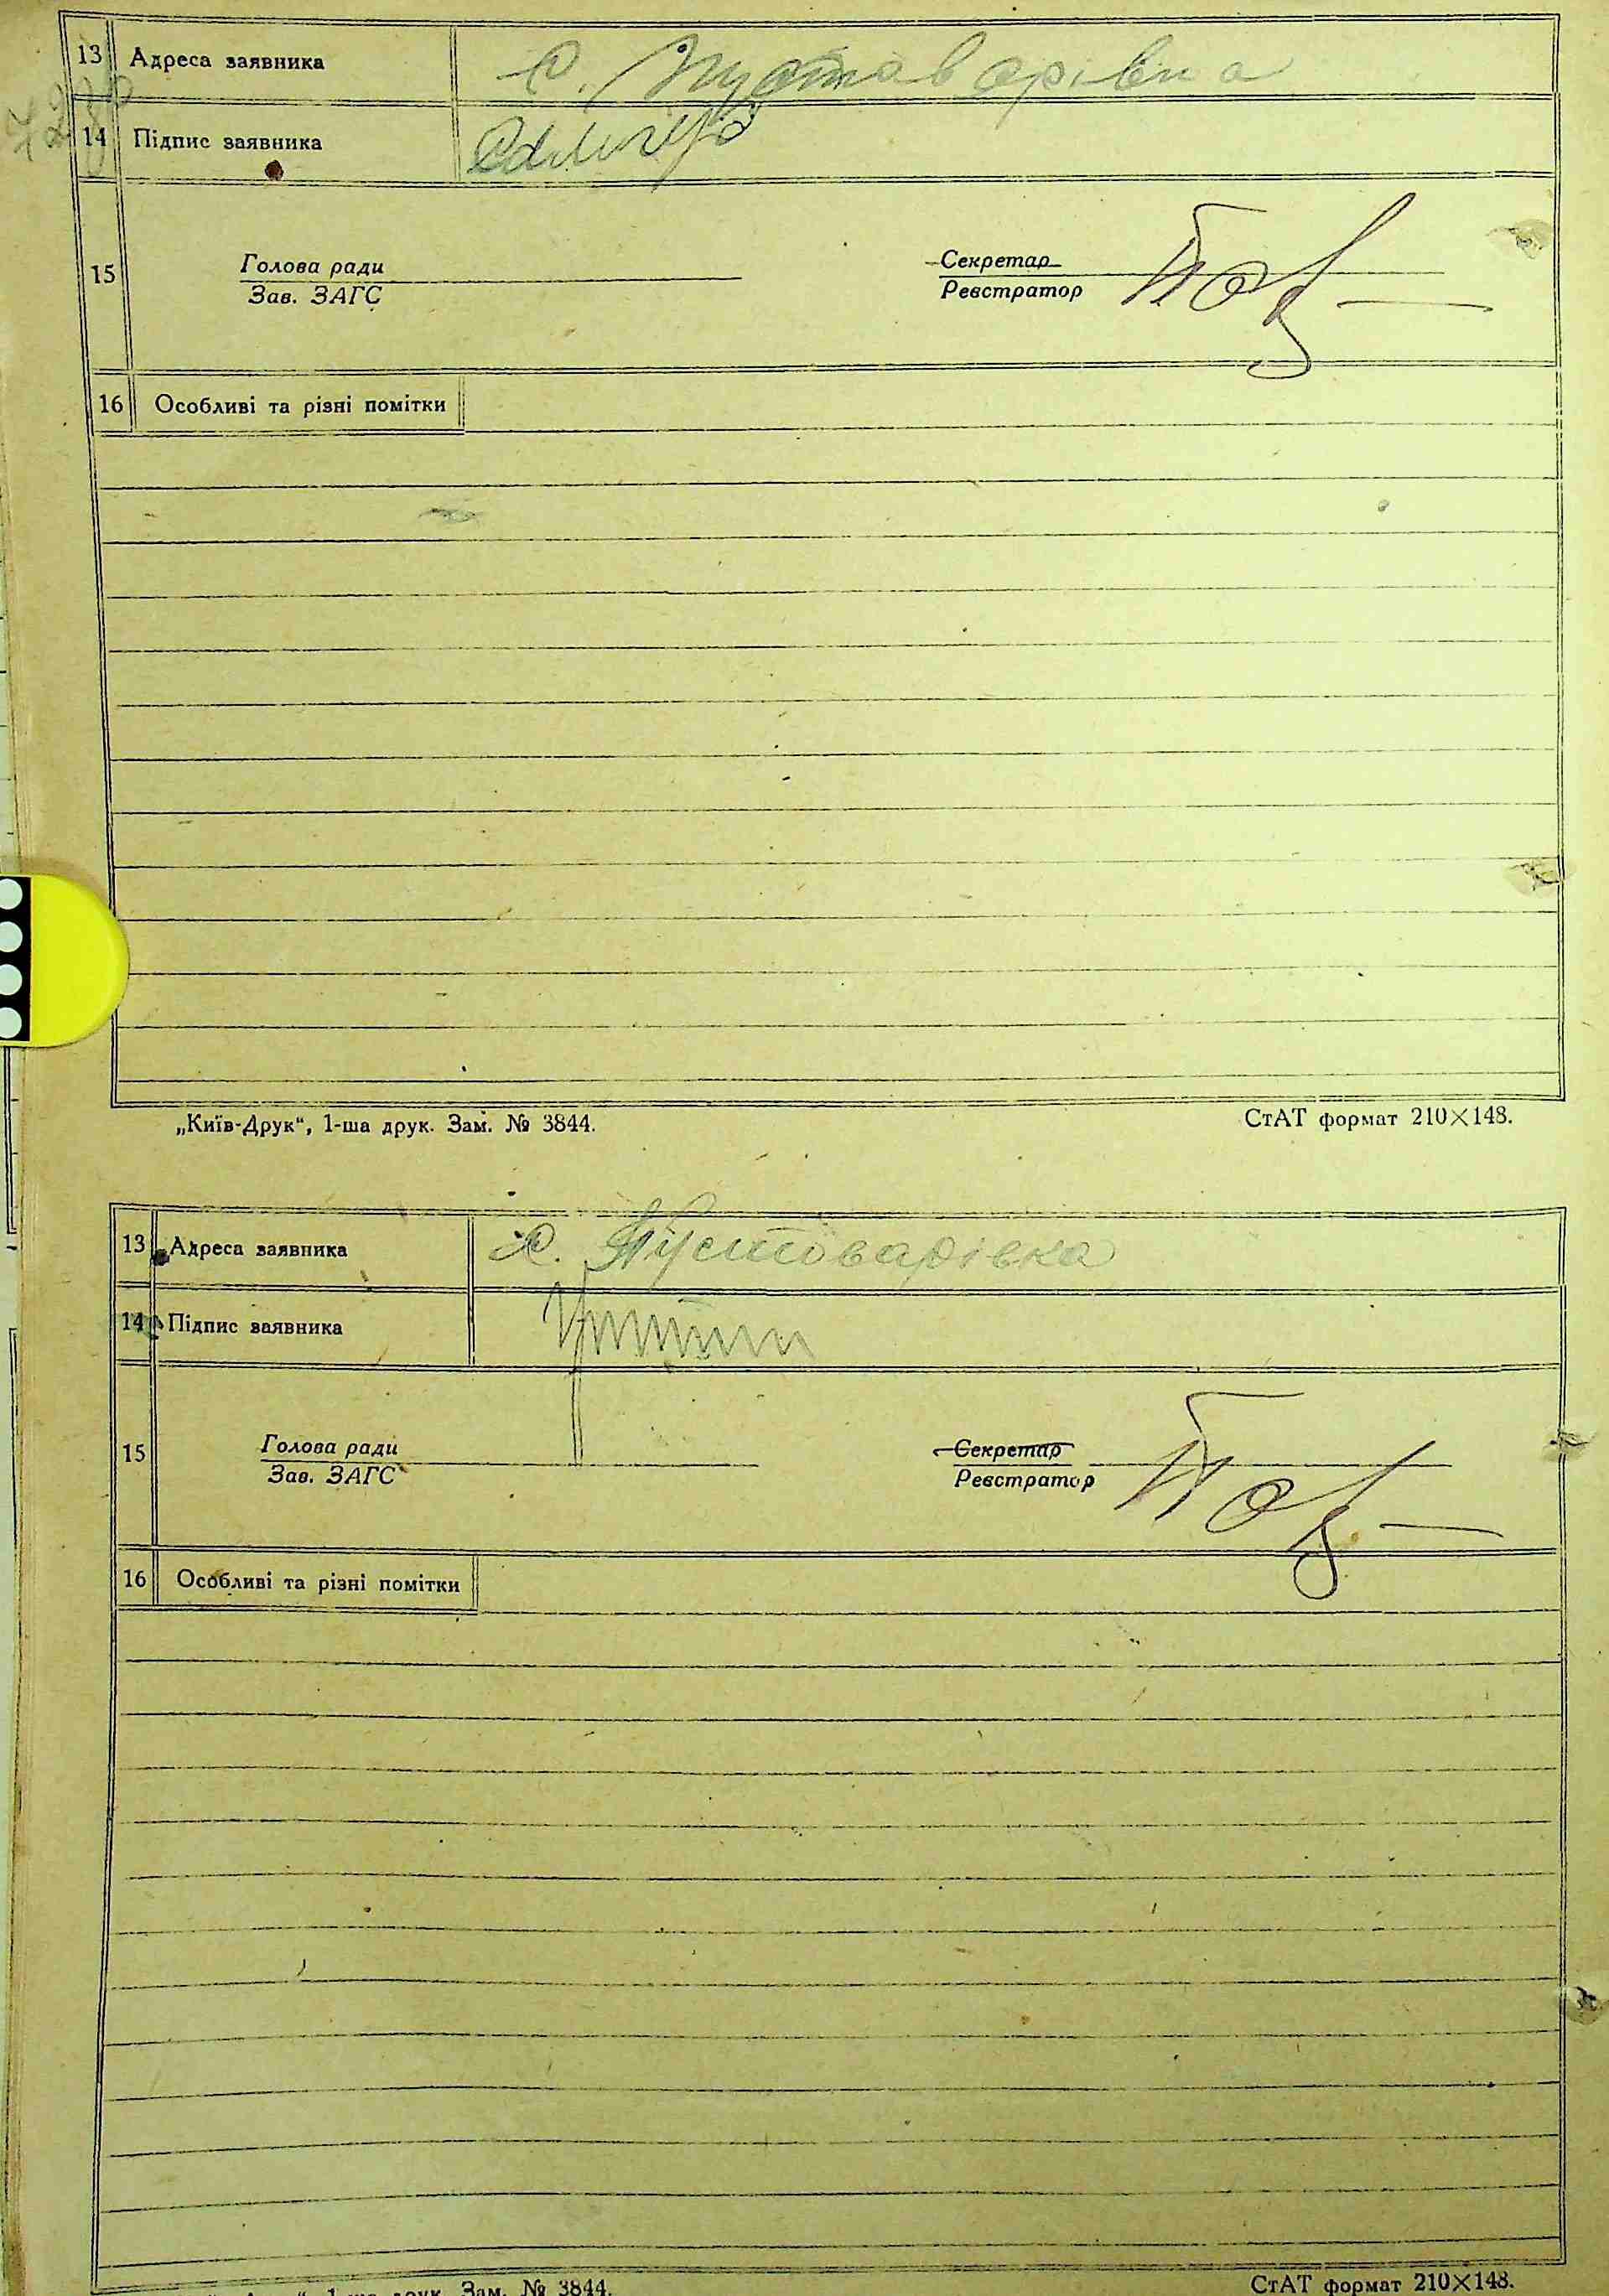 13 Адреса заявника с. Пустоварівка
14 Підпис заявника
15 Голова ради Секретар
Зав. ЗАГС Реєстратор
16 Особливі та різні помітки
„Київ-Друк“, 1-ша друк. Зам. № 3844. СтАТ формат 210×148.
13 Адреса заявника с. Пустоварівка
14 Підпис заявника
15 Голова ради Секретар
Зав. ЗАГС Реєстратор
16 Особливі та різні помітки
1-ша друк. Зам. № 3844. СтАТ формат 210×148.